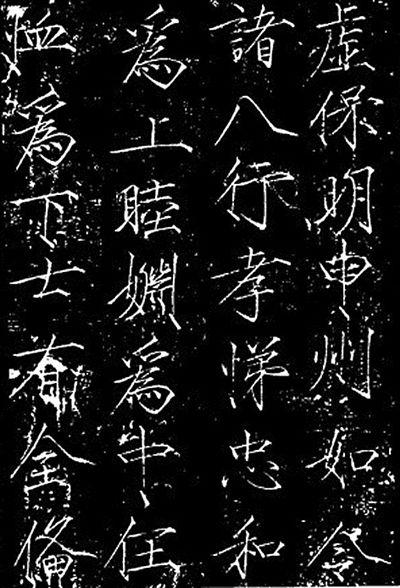 虛保明申州如令
諸八行孝悌忠和
爲上睦婣爲中任
恤爲下士有全俻